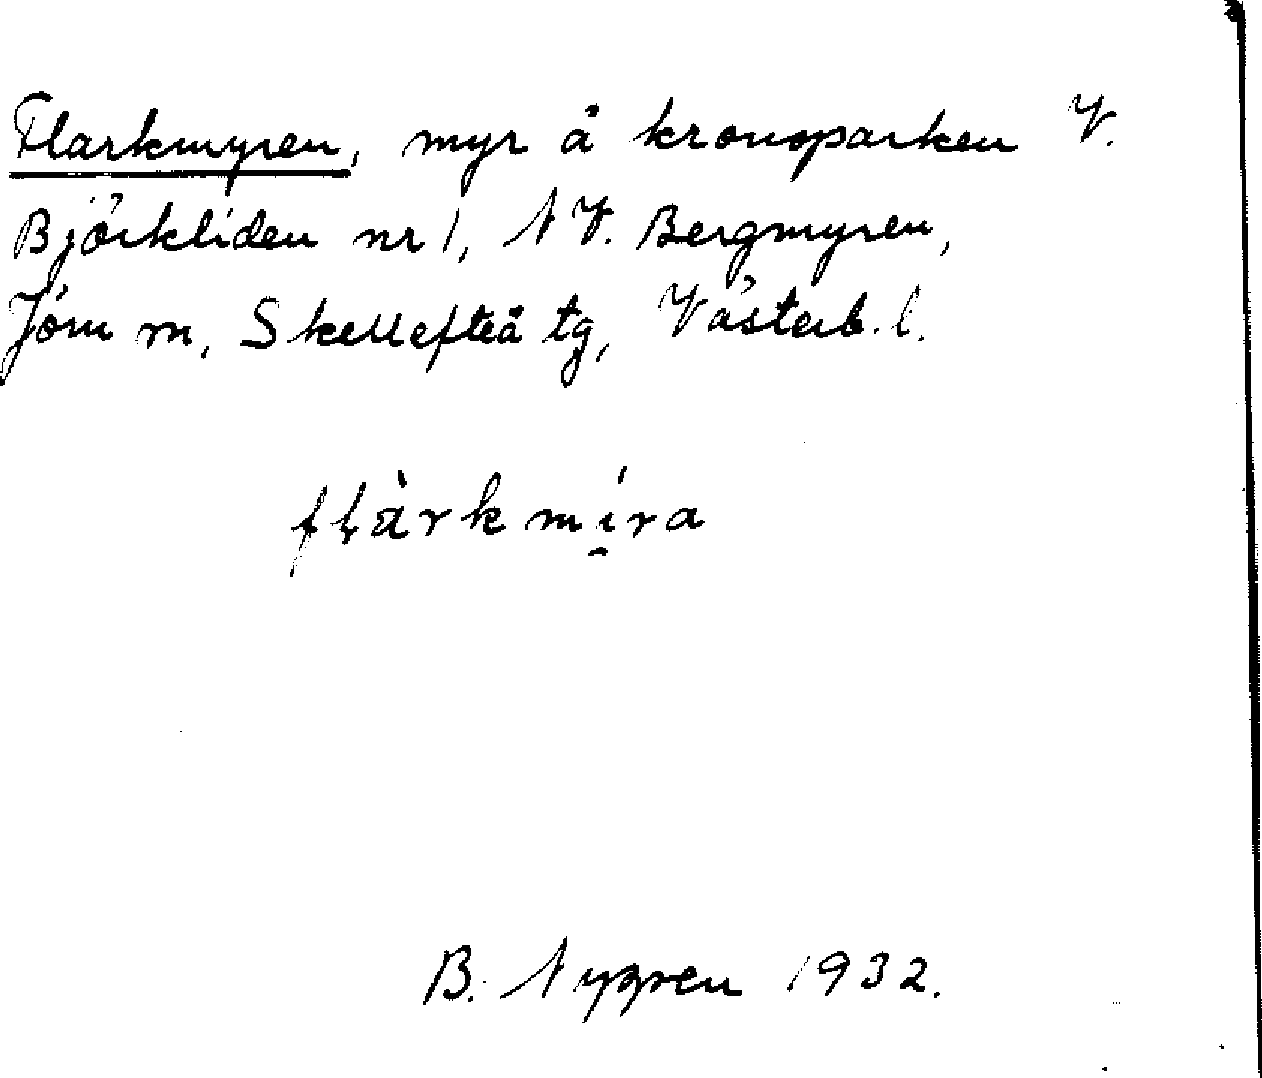 Flarkmyren, myr å kronoparken V.
Björkliden nr 1, NV. Bergmyren,
Jörn sn, Skellefteå tg, Västerb. l.
flàrkmı́ra
B. Nygren 1932.